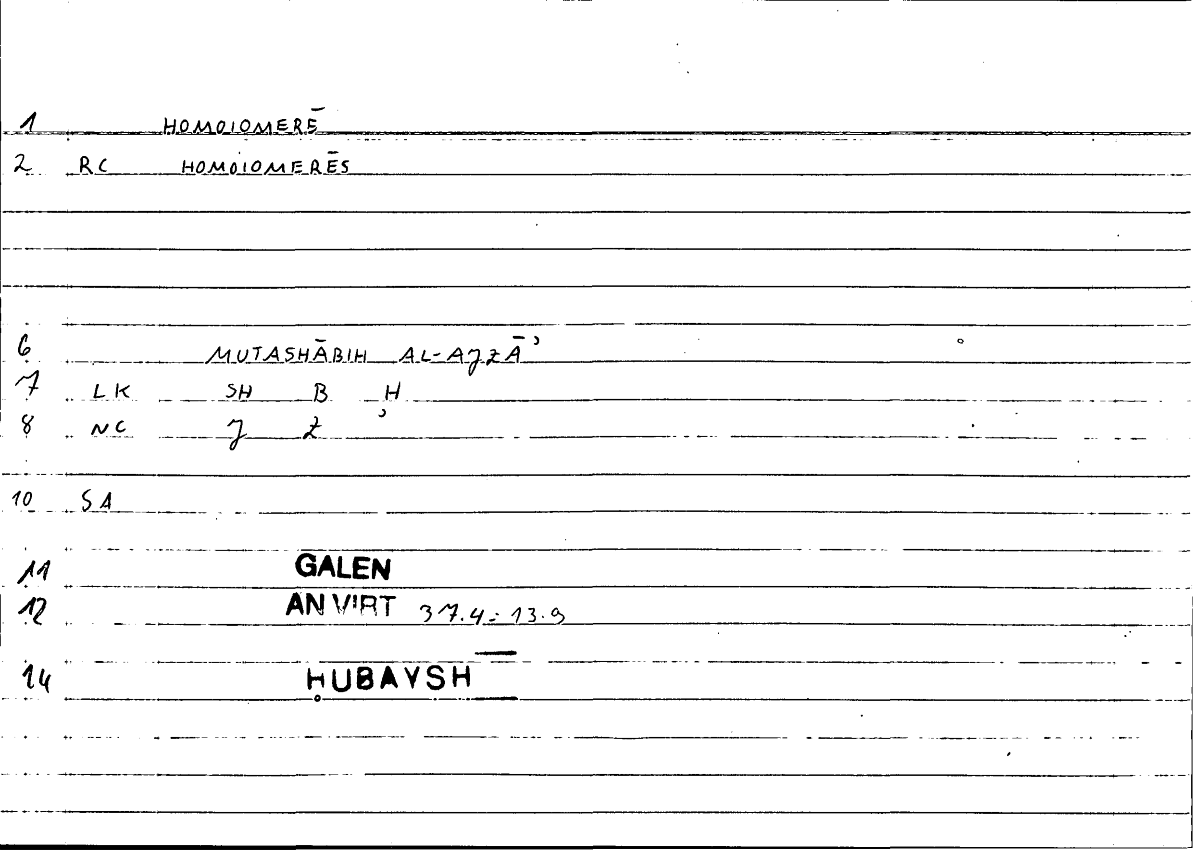 1 HOMOIOMERĒ
2 RC HOMOIOMERĒS
6 MUTASHĀBIH AL-AJZĀʾ
7 LK SH B H
8 NC J Z ʾ
10 SA
11 GALEN
12 AN VIRT 37.4 = 13.9
14 ḤUBAYSH